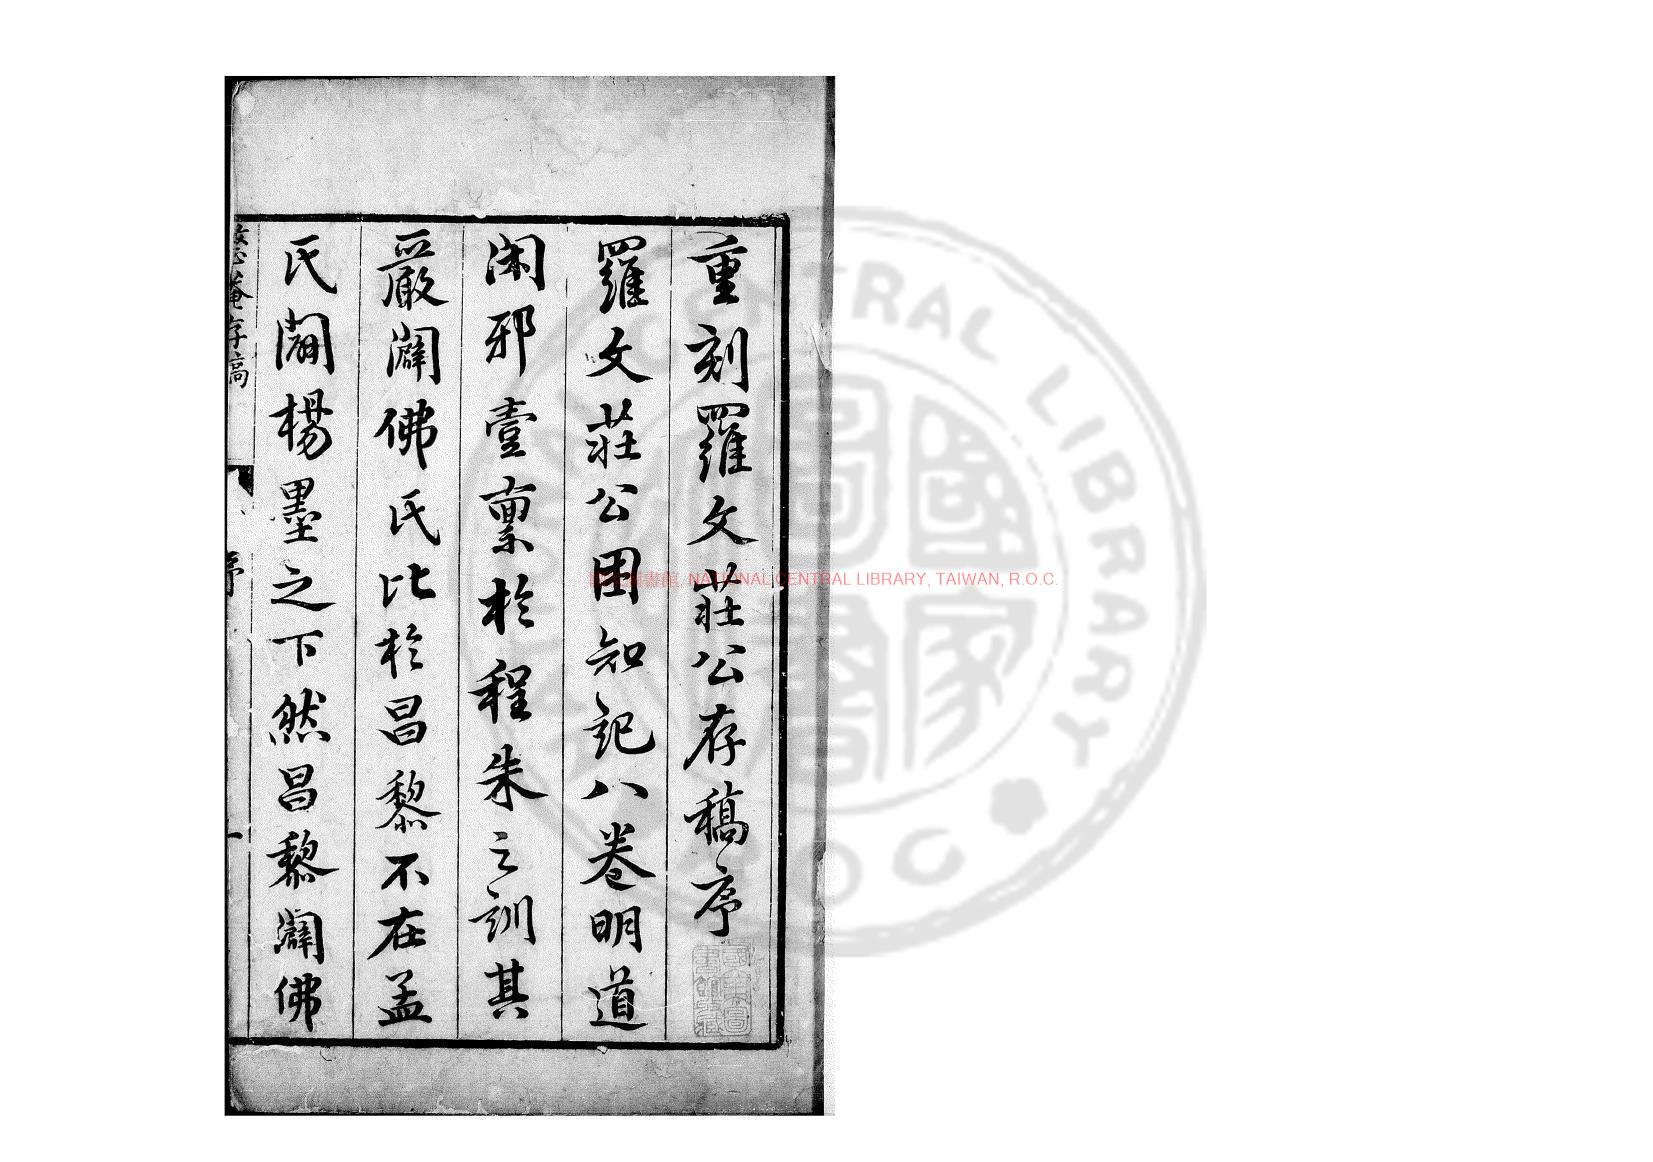 重刻羅文莊公存稿序
羅文莊公困知記八卷明道
閑邪壹稟於程朱之訓其
嚴闢佛氏比於昌黎不在孟
氏闢楊墨之下然昌黎闢佛
整菴存稿
序
一
NATIONAL CENTRAL LIBRARY, TAIWAN, R.O.C.
CENTRAL LIBRARY
國家圖書館